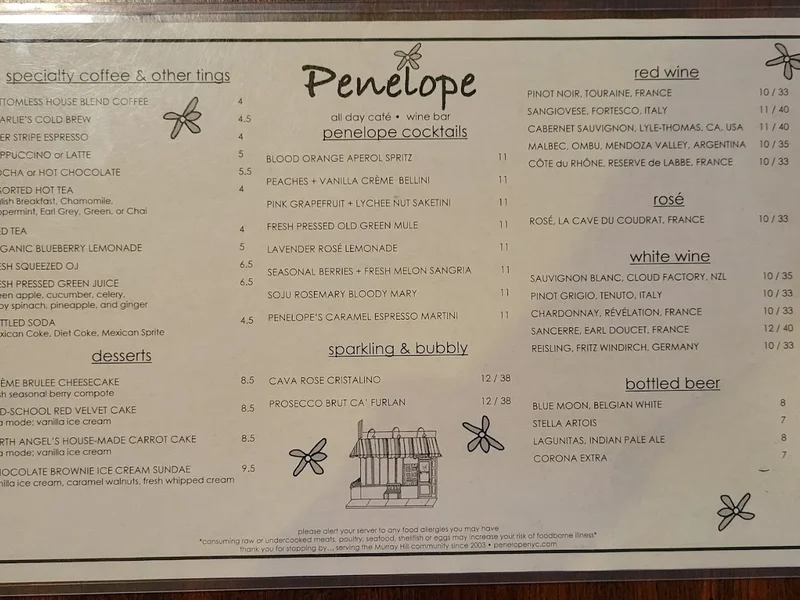 specialty coffee & other tings
TTOMLESS HOUSE BLEND COFFEE 4
ARLIE'S COLD BREW 4.5
ER STRIPE ESPRESSO 4
PPUCCINO or LATTE 5
OCHA or HOT CHOCOLATE 5.5
SORTED HOT TEA 4
lish Breakfast, Chamomile,
ppermint, Earl Grey, Green, or Chai
ED TEA 4
GANIC BLUEBERRY LEMONADE 5
ESH SQUEEZED OJ 6.5
ESH PRESSED GREEN JUICE 6.5
een apple, cucumber, celery,
by spinach, pineapple, and ginger
TTLED SODA 4.5
xican Coke, Diet Coke, Mexican Sprite
desserts
ÈME BRULEE CHEESECAKE 8.5
sh seasonal berry compote
D-SCHOOL RED VELVET CAKE 8.5
a mode: vanilla ice cream
RTH ANGEL'S HOUSE-MADE CARROT CAKE 8.5
a mode: vanilla ice cream
HOCOLATE BROWNIE ICE CREAM SUNDAE 9.5
nilla ice cream, caramel walnuts, fresh whipped cream
Penelope
all day café • wine bar
penelope cocktails
BLOOD ORANGE APEROL SPRITZ 11
PEACHES + VANILLA CRÈME BELLINI 11
PINK GRAPEFRUIT + LYCHEE NUT SAKETINI 11
FRESH PRESSED OLD GREEN MULE 11
LAVENDER ROSÉ LEMONADE 11
SEASONAL BERRIES + FRESH MELON SANGRIA 11
SOJU ROSEMARY BLOODY MARY 11
PENELOPE'S CARAMEL ESPRESSO MARTINI 11
sparkling & bubbly
CAVA ROSE CRISTALINO 12 / 38
PROSECCO BRUT CA' FURLAN 12 / 38
red wine
PINOT NOIR, TOURAINE, FRANCE 10 / 33
SANGIOVESE, FORTESCO, ITALY 11 / 40
CABERNET SAUVIGNON, LYLE-THOMAS, CA, USA 11 / 40
MALBEC, OMBU, MENDOZA VALLEY, ARGENTINA 10 / 35
CÔTE du RHÔNE, RESERVE de LABBE, FRANCE 10 / 33
rosé
ROSÉ, LA CAVE DU COUDRAT, FRANCE 10 / 33
white wine
SAUVIGNON BLANC, CLOUD FACTORY, NZL 10 / 35
PINOT GRIGIO, TENUTO, ITALY 10 / 33
CHARDONNAY, RÉVÉLATION, FRANCE 10 / 33
SANCERRE, EARL DOUCET, FRANCE 12 / 40
REISLING, FRITZ WINDIRCH, GERMANY 10 / 33
bottled beer
BLUE MOON, BELGIAN WHITE 8
STELLA ARTOIS 7
LAGUNITAS, INDIAN PALE ALE 8
CORONA EXTRA 7
please alert your server to any food allergies you may have
*consuming raw or undercooked meats, poultry, seafood, shellfish or eggs may increase your risk of foodborne illness*
thank you for stopping by... serving the Murray Hill community since 2003 • penelopenyc.com